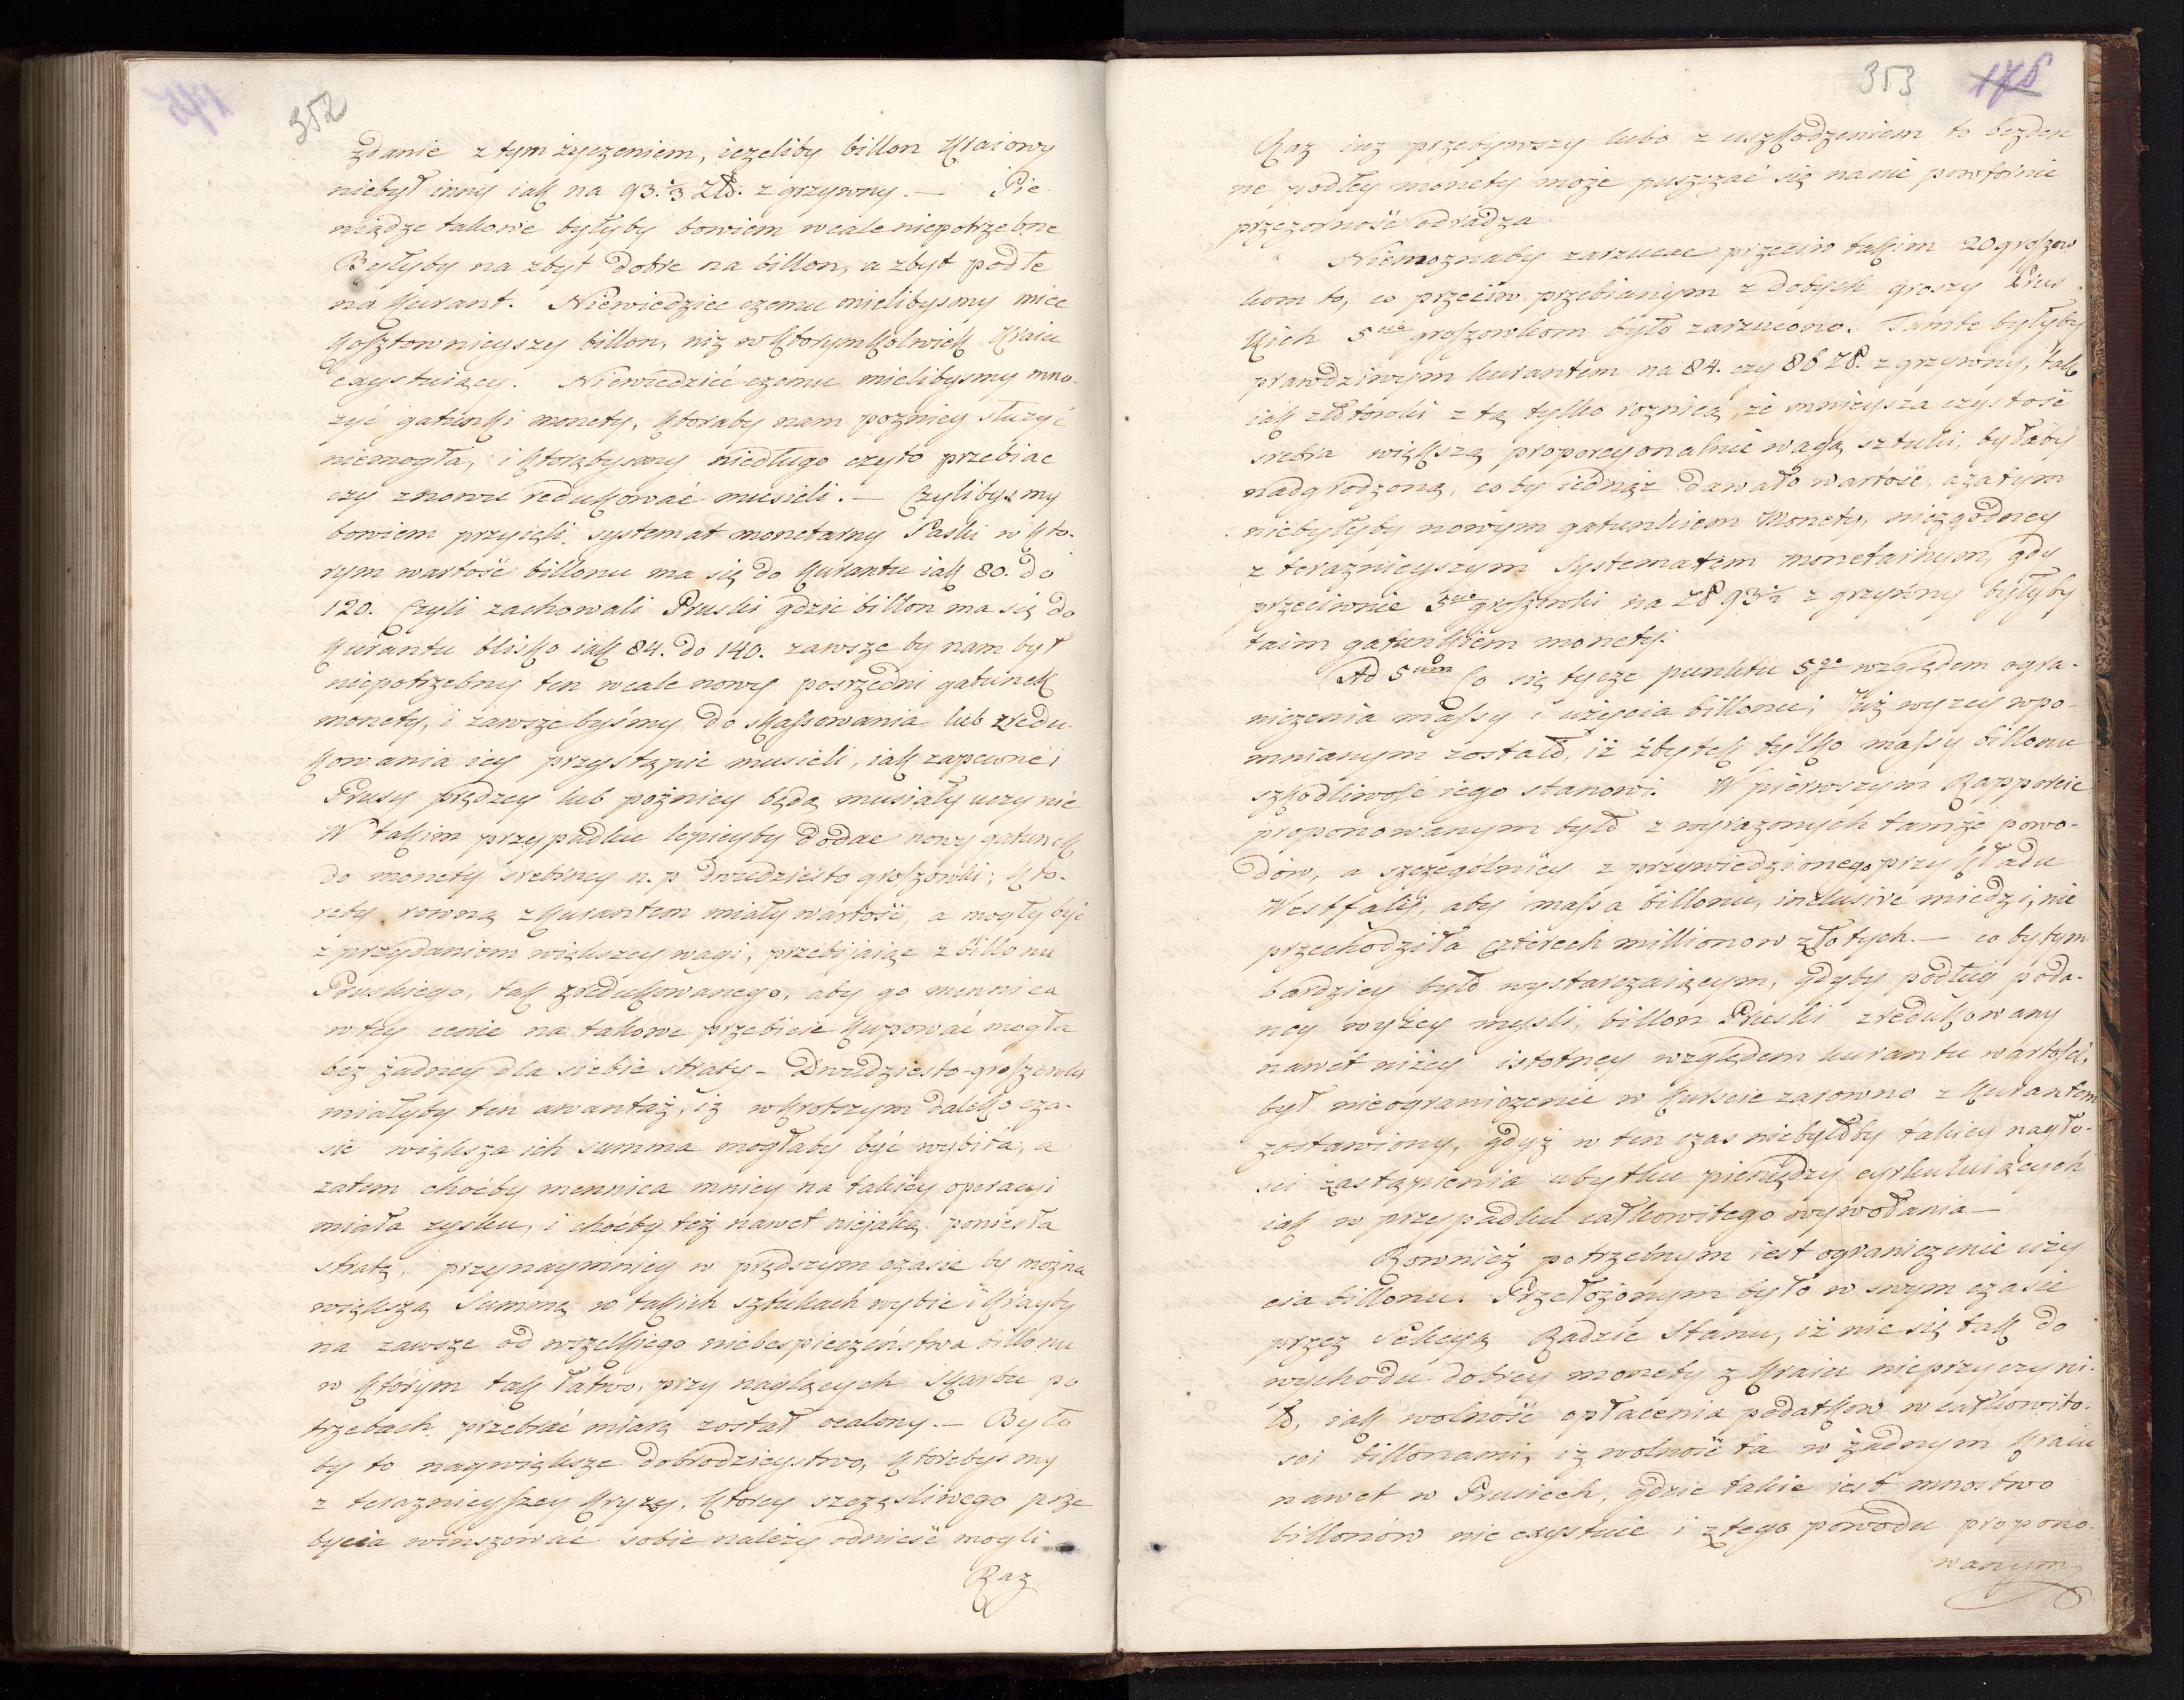 352
zdanie z tym życzeniem, ieżeliby billon kraiowy
niebył inny iak na 93.⅓ Zł. z grzywny. — Pie
niądze takowe byłyby bowiem wcale niepotrzebne
Byłyby na zbyt dobre na billon, a zbyt podłe
na kurant. Niewiedziec czemu mielibysmy miec
kosztownieyszy billon, niz w ktorymkolwiek kraiu
exystuiący. Niewiedzieć czemu mielibysmy mno-
żyć gatunki monety, ktoraby nam pozniey służyć
niemogła, i ktorąbysmy niedługo czyto przebiac
czy znowu redukować musieli. — Czylibysmy
bowiem przyieli systemat monetarny Saski w kto-
rym wartość billonu ma się do kurantu iak 80. do
120. Czyli zachowali Pruski gdzie billon ma się do
kurantu blisko iak 84. do 140. zawsze by nam był
niepotrzebny ten wcale nowy posrzedni gatunek
monety, i zawsze byśmy do skassowania lub zredu
kowania iey przystąpic musieli, iak zapewne i
Prusy prędzey lub pożniey będą musiały uczynic
W takim przypadku lepieyby dodac nowy gatunek
do monety srebrney n.p dwudziesto groszowki; kto-
reby rowną z kurantem miały wartość, a mogły być
z przydaniem większey wagi, przebijaiąc z billonu
Pruskiego, tak zredukowanego, aby go mennica
w tey cenie na takowe przebicie kupować mogła
bez żadney dla siebie straty - Dwudziesto-groszowki
miałyby ten awantaż, iż w krotszym daleko cza-
sie większa ich summa mogłaby być wybita, a
zatem choćby mennica mniey na takiey operacyi
miała zysku, i choćby też nawet niejaką poniesła
stratę, przynaymniey w prędszym czasie by można
większą Summę w takich sztukach wybic i krayby
na zawsze od wszelkiego niebespieczeństwa billonu
w którym tak łatwo, przy naglących skarbu po
trzebach przebrać miarę został ocalony. — Było
by to naywiększe dobrodzieystwo, ktorebysmy
z teraznieyszey kryzy, ktorey szczęsliwego prze
bycia winszować sobie należy odnieść mogli
Raz
353 175
Raz iuz przebywszy lubo z uszkodzeniem to bezden
ne podłey monety może puszczać się na nie powtórnie
przezorność odradza.
Niemoznaby zarzucac przeciw takim 20 groszow
kom to, co przeciw przebianym z dobych groszy Prus
kich 5cio groszowkom było zarzucono. Tamte byłyby
prawdziwym kurantem na 84. czy 86 Zł. z grzywny, tak
iak złotowki z tą tylko roznicą, że mnieysza czystość
srebra większą proporcyonalnie wagą sztuki, byłaby
nadgrodzoną, coby iednąż dawało wartość, a zatym
niebyłyby nowym gatunkiem Monety, niezgodney
z teraznieyszym Systematem monetarnym, gdy
przeciwnie 5cio groszowki na Zł 93½ z grzywny byłyby
taim gatunkiem monety.
Ad 5tum Co się tycze punktu 5go względem ogra-
niczenia massy i użycia billonu; Już wyzey wpo-
mnianym zostało, iż zbytek tylko massy billonu
szkodliwość iego stanowi. W pierwszym Rapporcie
proponowanym było z wyrazonych tamże powo-
dów, a szczególniey z przywiedzionego przykładu
Westfalij, aby massa billonu, inclusive miedzi, nie
przechodziła czterech millionow złotych. — co by tym
bardziey było wystarczaiącym, gdyby podług poda-
ney wyżey mysli, billon Pruski zredukowany
nawet niżey istotney względem kurantu wartości,
był nieograniczenie w kurscie zarowno z kurantem
zostawiony, gdyż w ten czas niebyłoby takiey nagło-
sci zastąpienia ubytku pieniędzy cyrkuluiących
iak w przypadku całkowitego wywołania —
Rownież potrzebnym iest ograniczenie uży
cia billonu. Przełożonym było w swym czasie
przez Sekcyą Radzie Stanu, iż nic się tak do
wychodu dobrey monety z kraiu nieprzyczyni-
ło, iak wolność opłacenia podatkow w całkowito-
sci billonami, iz wolność ta w żadnym kraiu
nawet w Prusiech, gdzie takie iest mnostwo
billonów nie exystuie i z tego powodu propono-
wanym